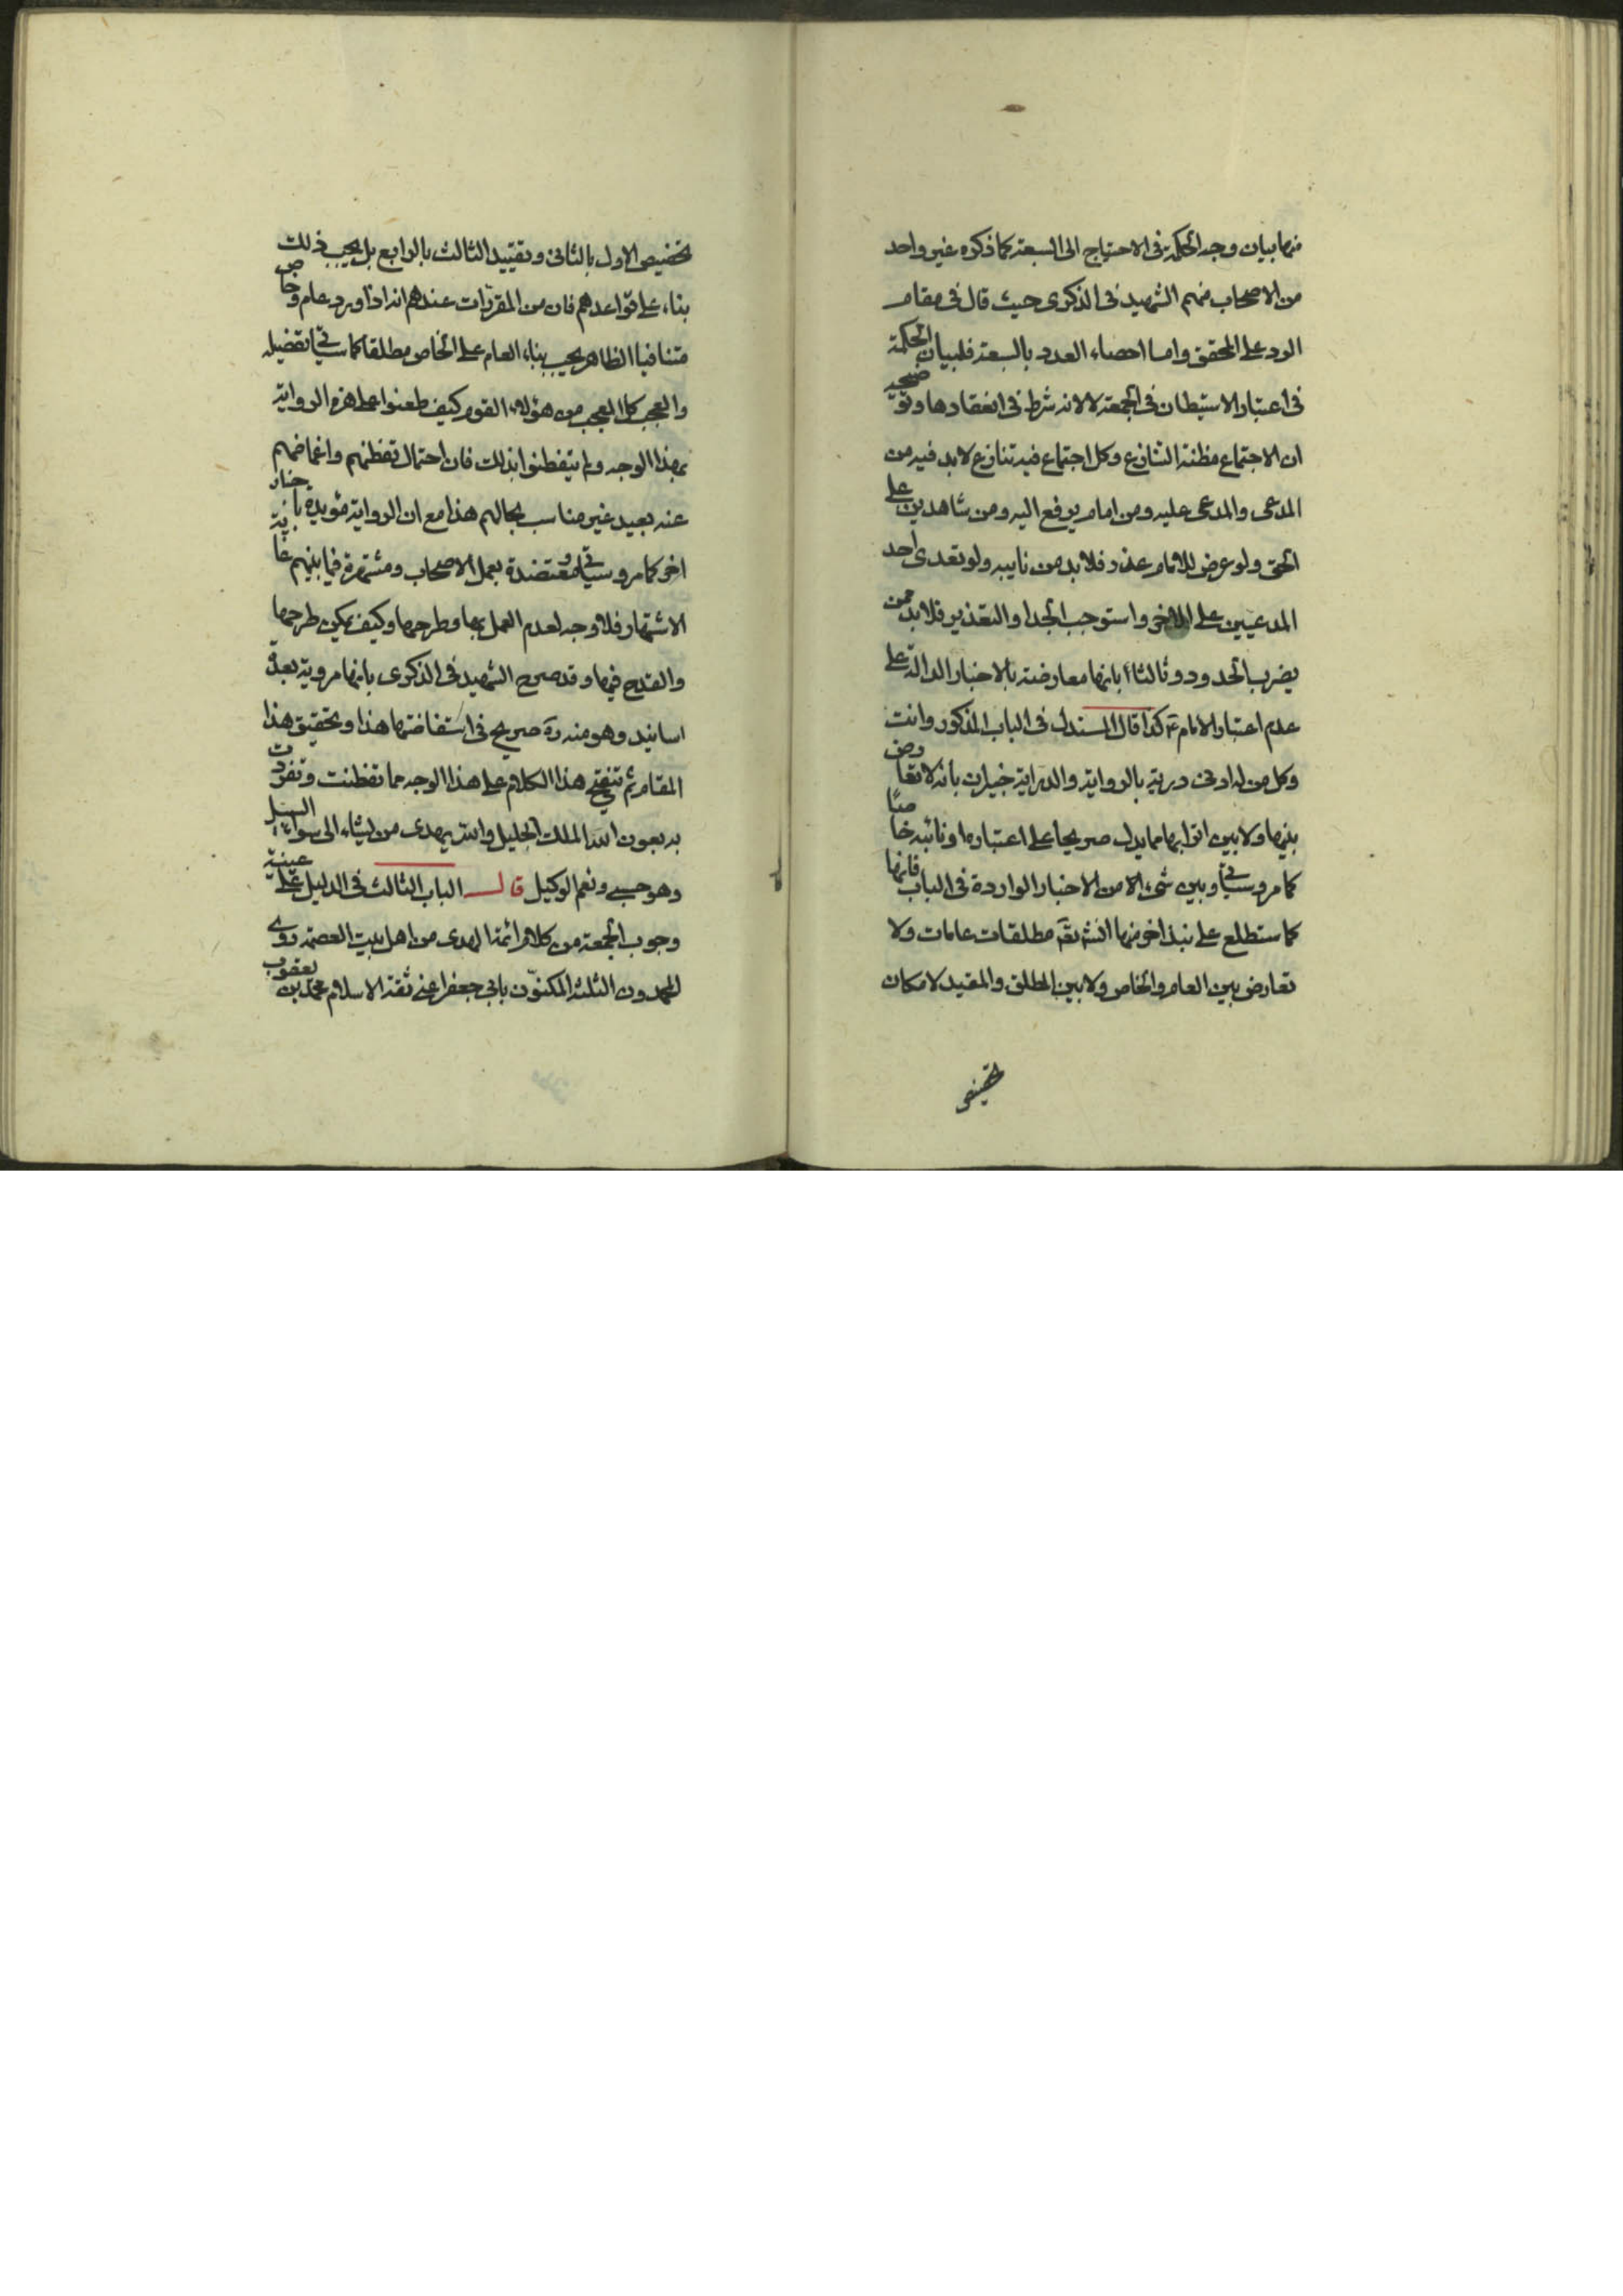 منها بيان وجه الحكمة فى الاحتياج الى السبعة كما ذكره غير واحد
من الاصحاب منهم الشهيد فى الذكرى حيث قال فى مقام
الرد على المحقق واما احصاء العدد بالسبعة فلبيان الحكمة
فى اعتبار الاستيطان فى الجمعة لا لانه شرط فى انعقادها وتوضيحه
ان الاجتماع مظنة التنازع وكل اجتماع فيه تنازع لابد فيه من
المدعى والمدعى عليه ومن امام يرفع اليه ومن شاهدين على
الحق ولو عرض للامام عذر فلا بد من نايبه ولو تعدى احد
المدعيين على الاخر واستوجب الحد او التعذير فلا بد ممن
يضرب الحدود وثالثا بانها معارضة بالاخبار الدالة على
عدم اعتبار الامام ع كذا قال المستدل فى الباب المذكور وانت
وكل من له ادنى دربة بالرواية والدراية خبيران بانه لا تعارض
بينها ولا بين اترابها مما يدل صريحا على اعتباره او نائبه خاصا
كما مر وسيأتى وبين شىء الا من الاخبار الواردة فى الباب فانها
كما ستطلع على نبذ اخر منها انش تع مطلقات عامات ولا
تعارض بين العام والخاص ولا بين المطلق والمقيد لامكان
تخصيص
تخصيص الاول بالثانى وتقييد الثالث بالرابع بل يجب ذلك
بناء على قواعدهم فان من المقررات عندهم انه اذا ورد عام وخاص
متنافيا الظاهر يجب بناء العام على الخاص مطلقا كما سيأتى تفصيله
والعجب كل العجب من هؤلاء القوم كيف طعنوا على هذه الرواية
بهذا الوجه ولم يتفطنوا بذلك فان احتمال تفطنهم واغماضهم
عنه بعيد غير مناسب بحالهم هذا مع ان الرواية مؤيدة باخبار
اخر كما مر وسيأتى ومعتضدة بعمل الاصحاب ومشتهرة فيما بينهم غاية
الاشتهار فلا وجه لعدم العمل بها وطرحها وكيف يمكن طرحها
والقدح فيها وقد صرح الشهيد فى الذكرى بانها مروية بعدة
اسانيد وهو منه ره صريح فى استفاضتها هذا وتحقيق هذا
المقام ثم تنقيح هذا الكلام على هذا الوجه مما تفطنت وتفردت
به بعون الله الملك الجليل والله يهدى من يشاء الى سواء السبيل
وهو حسبى ونعم الوكيل قال الباب الثالث فى الدليل على عينية
وجوب الجمعة من كلام ائمة الهدى من اهل بيت العصمة روى
المحمدون الثلثة المكنون بابى جعفر اعنى ثقة الاسلام محمد بن يعقوب